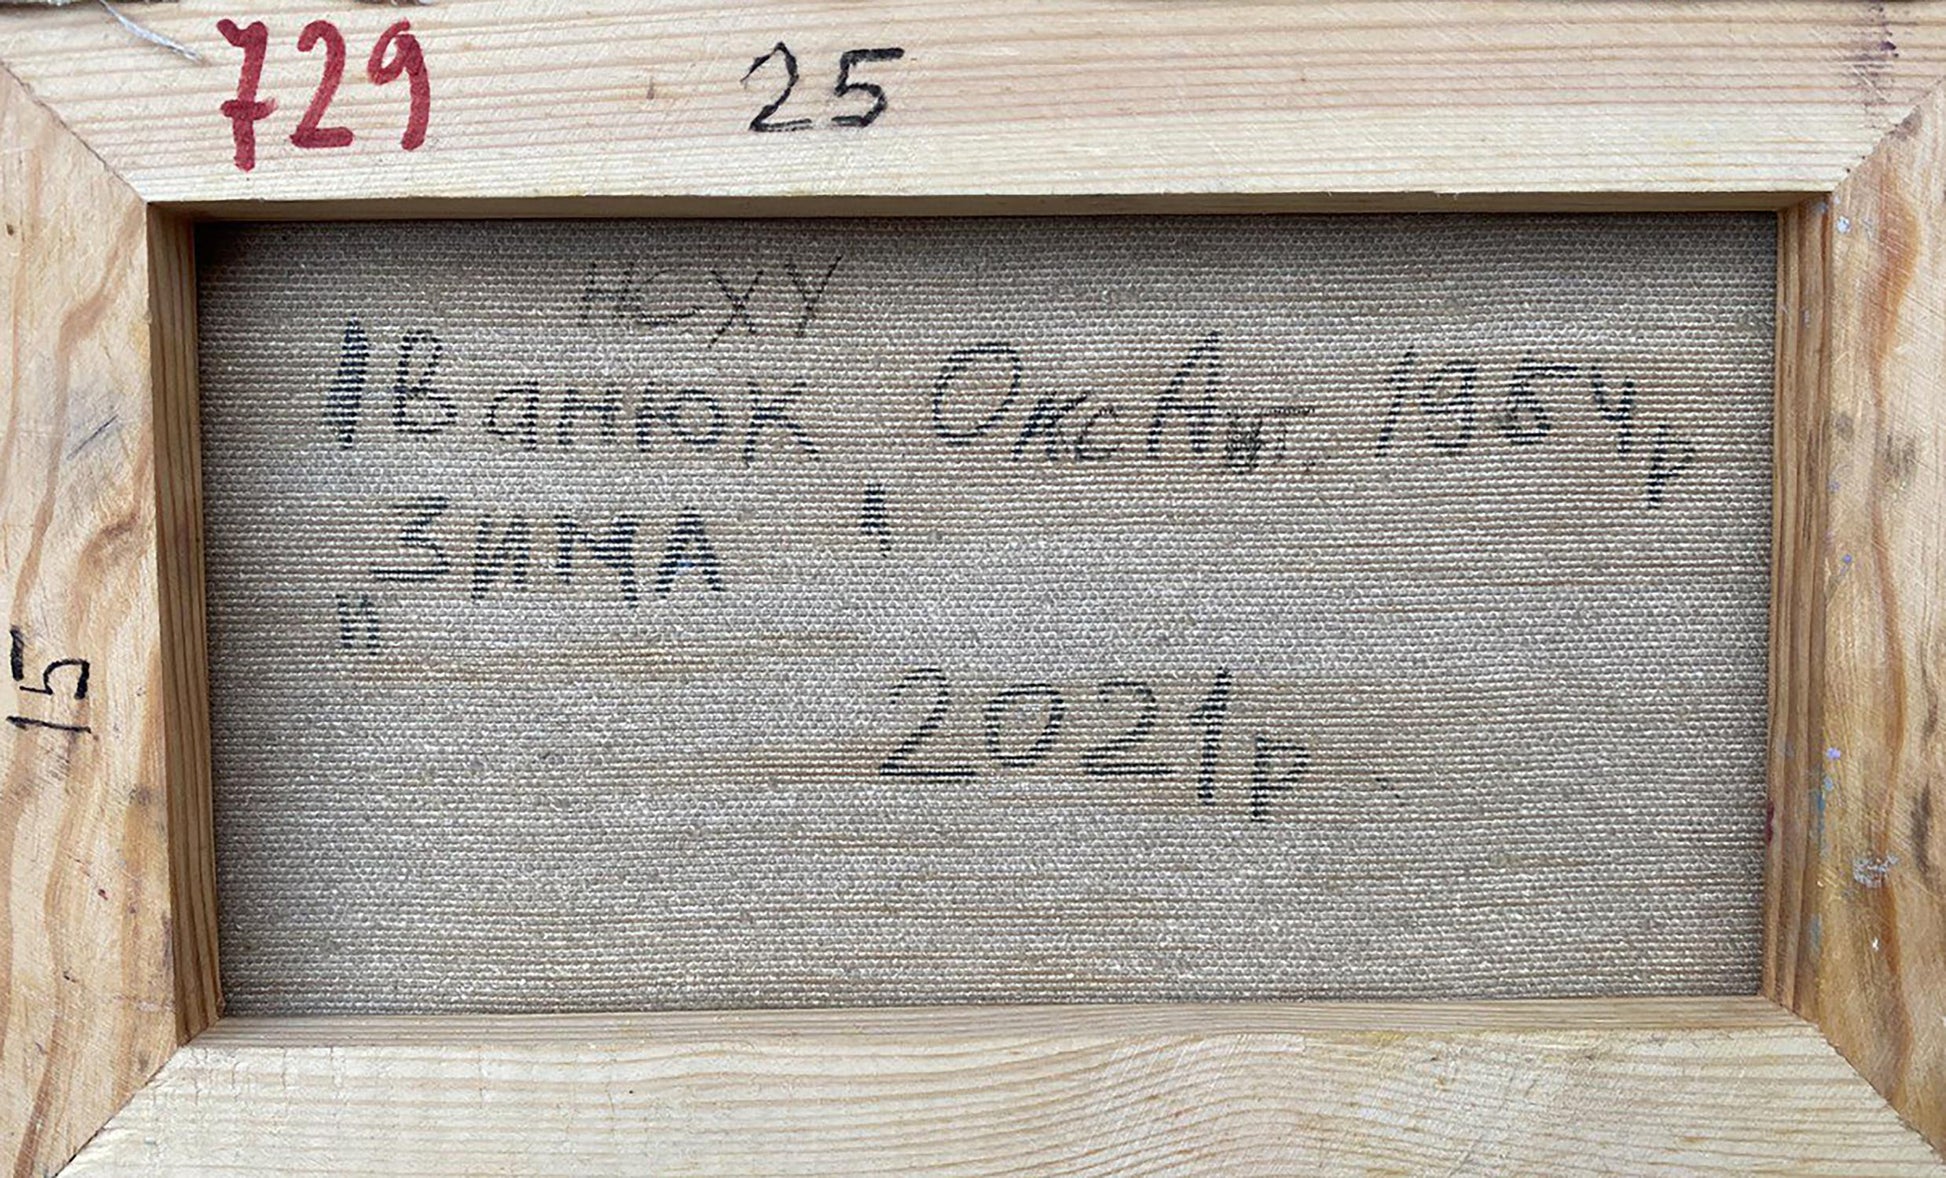 729 25
НСХУ
Іванюк 1954р
"Зима"
2021р
15